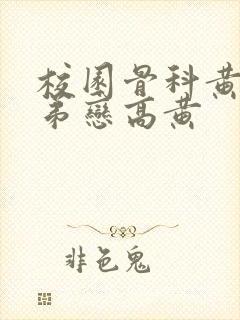 校園骨科黃
弟戀高黃
非色鬼